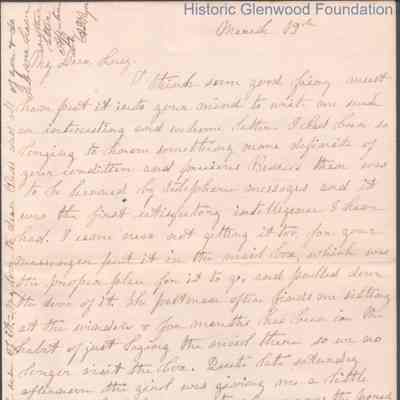 Historic Glenwood Foundation
March 19th
My Dear Lucy,
I think some good fairy must
have put it into your mind to write me such
an interesting and welcome letter. I had been so
longing to know something more definite of
your condition and precious Bessie's than was
to be learned by telephone messages and it
was the first satisfactory intelligence I have
had. I came near not getting it too, for your
messenger put it in the mail box, which was
the proper place for it to go, and pulled down
the door of it. The postman often finds me sitting
at the window & for months has been in the
habit of just laying the mail there so we no
longer visit the box. Quite late saturday
afternoon the girl was giving me a little